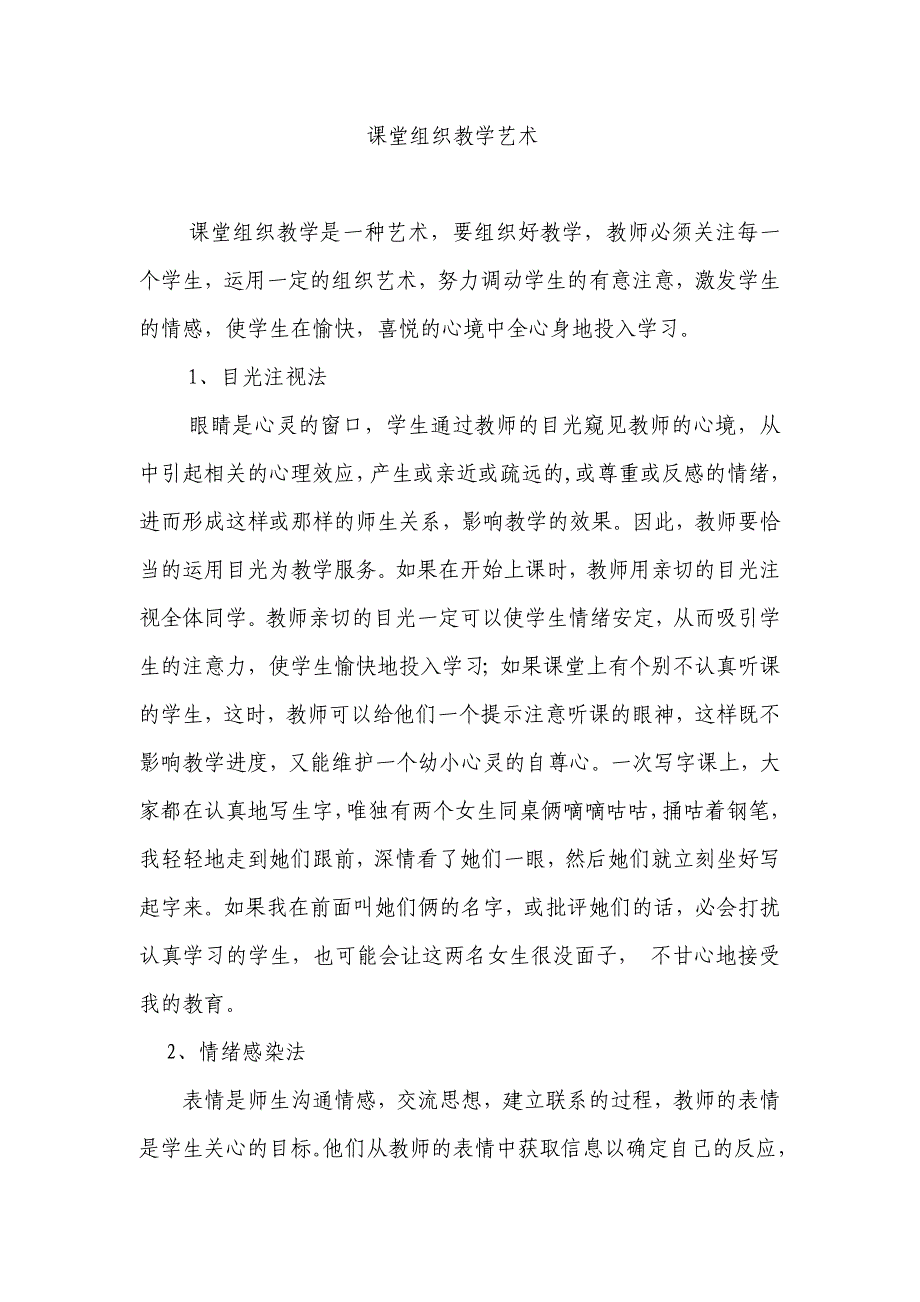 课堂组织教学艺术
课堂组织教学是一种艺术，要组织好教学，教师必须关注每一
个学生，运用一定的组织艺术，努力调动学生的有意注意，激发学生
的情感，使学生在愉快，喜悦的心境中全心身地投入学习。
1、目光注视法
眼睛是心灵的窗口，学生通过教师的目光窥见教师的心境，从
中引起相关的心理效应，产生或亲近或疏远的,或尊重或反感的情绪，
进而形成这样或那样的师生关系，影响教学的效果。因此，教师要恰
当的运用目光为教学服务。如果在开始上课时，教师用亲切的目光注
视全体同学。教师亲切的目光一定可以使学生情绪安定，从而吸引学
生的注意力，使学生愉快地投入学习；如果课堂上有个别不认真听课
的学生，这时，教师可以给他们一个提示注意听课的眼神，这样既不
影响教学进度，又能维护一个幼小心灵的自尊心。一次写字课上，大
家都在认真地写生字，唯独有两个女生同桌俩嘀嘀咕咕，捅咕着钢笔，
我轻轻地走到她们跟前，深情看了她们一眼，然后她们就立刻坐好写
起字来。如果我在前面叫她们俩的名字，或批评她们的话，必会打扰
认真学习的学生，也可能会让这两名女生很没面子， 不甘心地接受
我的教育。
2、情绪感染法
表情是师生沟通情感，交流思想，建立联系的过程，教师的表情
是学生关心的目标。他们从教师的表情中获取信息以确定自己的反应，